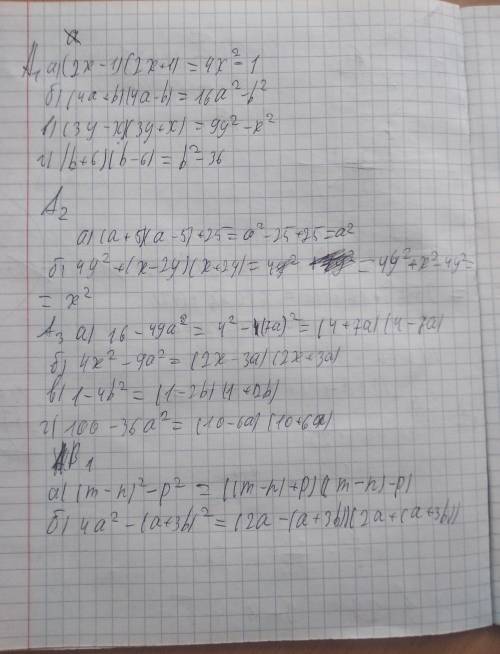 А1 а) (2x-1)(2x+1) = 4x²-1
б) (4a+b)(4a-b) = 16a²-b²
в) (3y-x)(3y+x) = 9y²-x²
г) (b+6)(b-6) = b²-36
А2
а) (a+5)(a-5)+25 = a²-25+25 = a²
б) 4y²+(x-2y)(x+2y) = = 4y²+x²-4y² =
= x²
А3 а) 16-49a² = 4²-(7a)² = (4+7a)(4-7a)
б) 4x²-9a² = (2x-3a)(2x+3a)
в) 1-4b² = (1-2b)(1+2b)
г) 100-36a² = (10-6a)(10+6a)
В1
а) (m-n)²-p² = ((m-n)+p)((m-n)-p)
б) 4a²-(a+3b)² = (2a-(a+3b))(2a+(a+3b))